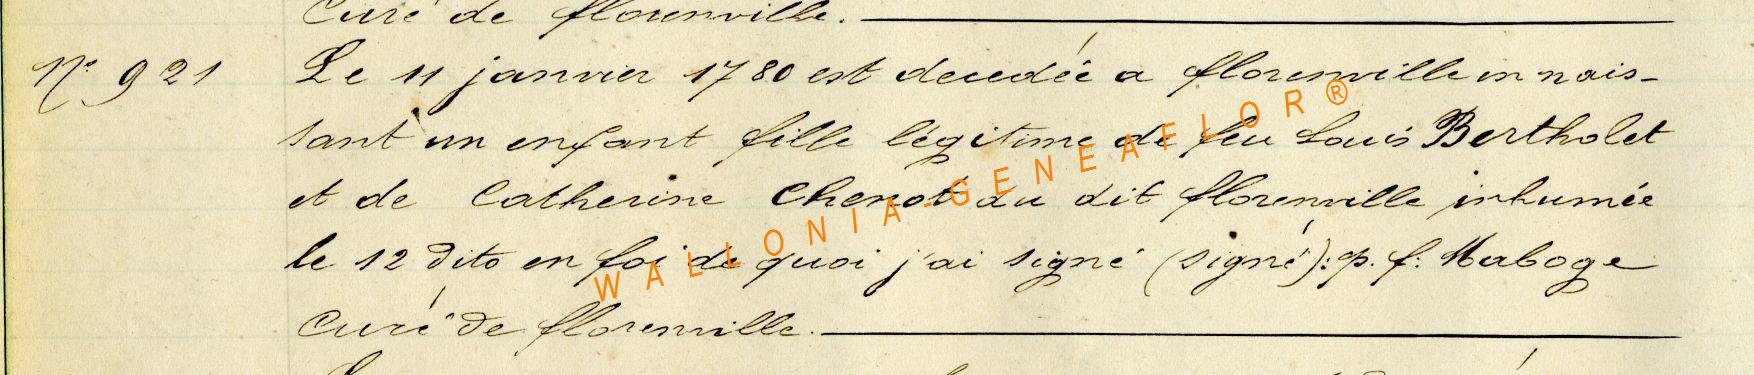 Curé de florenville.
N° 921 Le 11 janvier 1780 est decedée a florenville en nais-
sant un enfant fille légitime de feu Louis Bertholet
et de Catherine Chenot du dit florenville inhumée
le 12 dito en foi de quoi j'ai signé (signé): p. f: Maboge
Curé de florenville.
WALLONIA-GENEAFLOR®